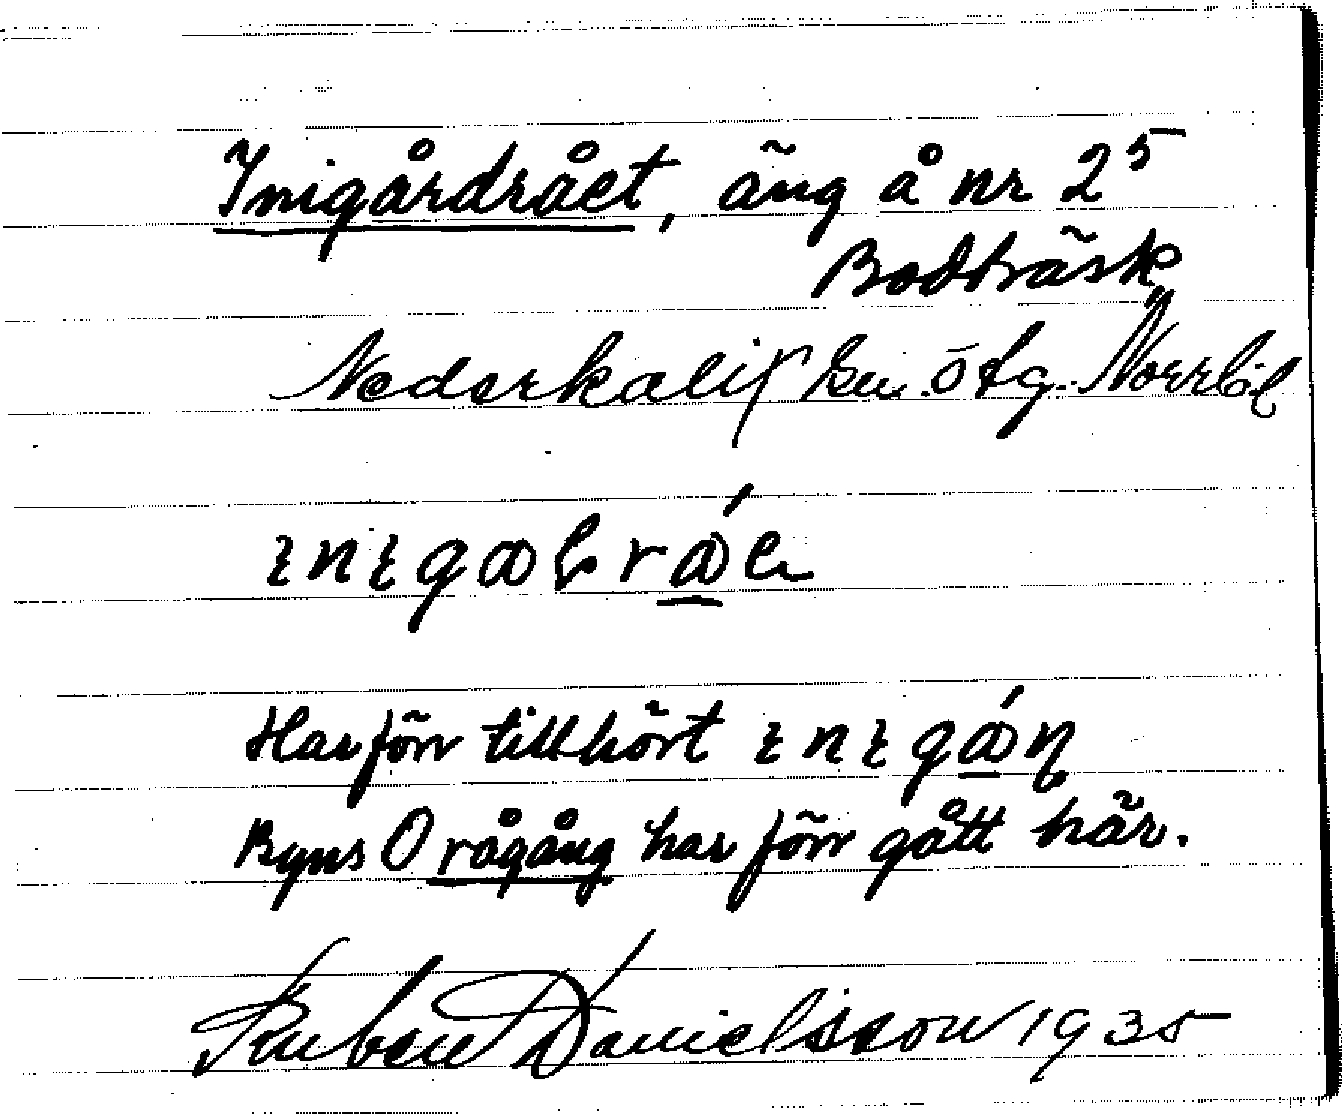 Inigårdrået, äng å nr 2⁵
Bodträsk
Nederkalix sn. ö tg. Norrb.l
Har förr tillhört
Byns O rågång har förr gått här.
Ruben Danielsson 1935